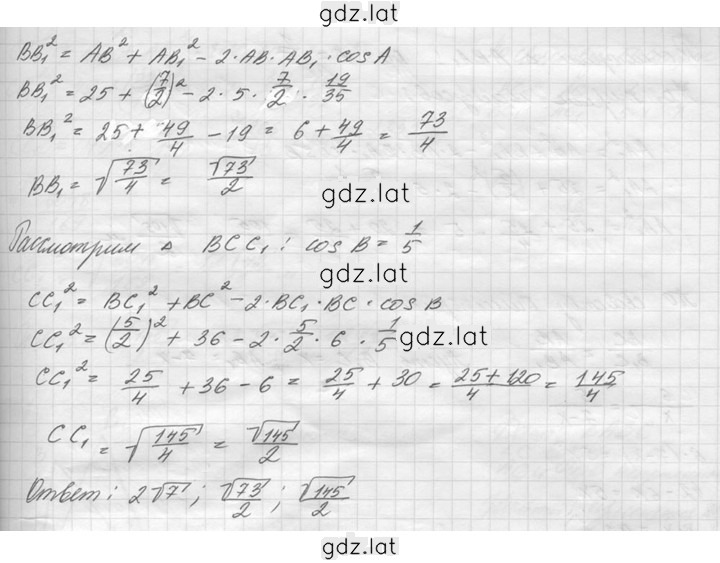 gdz.lat
BB₁² = AB² + AB₁² - 2·AB·AB₁·cosA
BB₁² = 25 + (7/2)² - 2·5·7/2·19/35
BB₁² = 25 + 49/4 - 19 = 6 + 49/4 = 73/4
BB₁ = √(73/4) = √73/2
gdz.lat
Рассмотрим △ BCC₁: cosB = 1/5
CC₁² = BC₁² + BC² - 2·BC₁·BC·cosB
CC₁² = (5/2)² + 36 - 2·5/2·6·1/5
gdz.lat
CC₁² = 25/4 + 36 - 6 = 25/4 + 30 = (25+120)/4 = 145/4
CC₁ = √(145/4) = √145/2
Ответ: 2√7; √73/2; √145/2
gdz.lat
gdz.lat